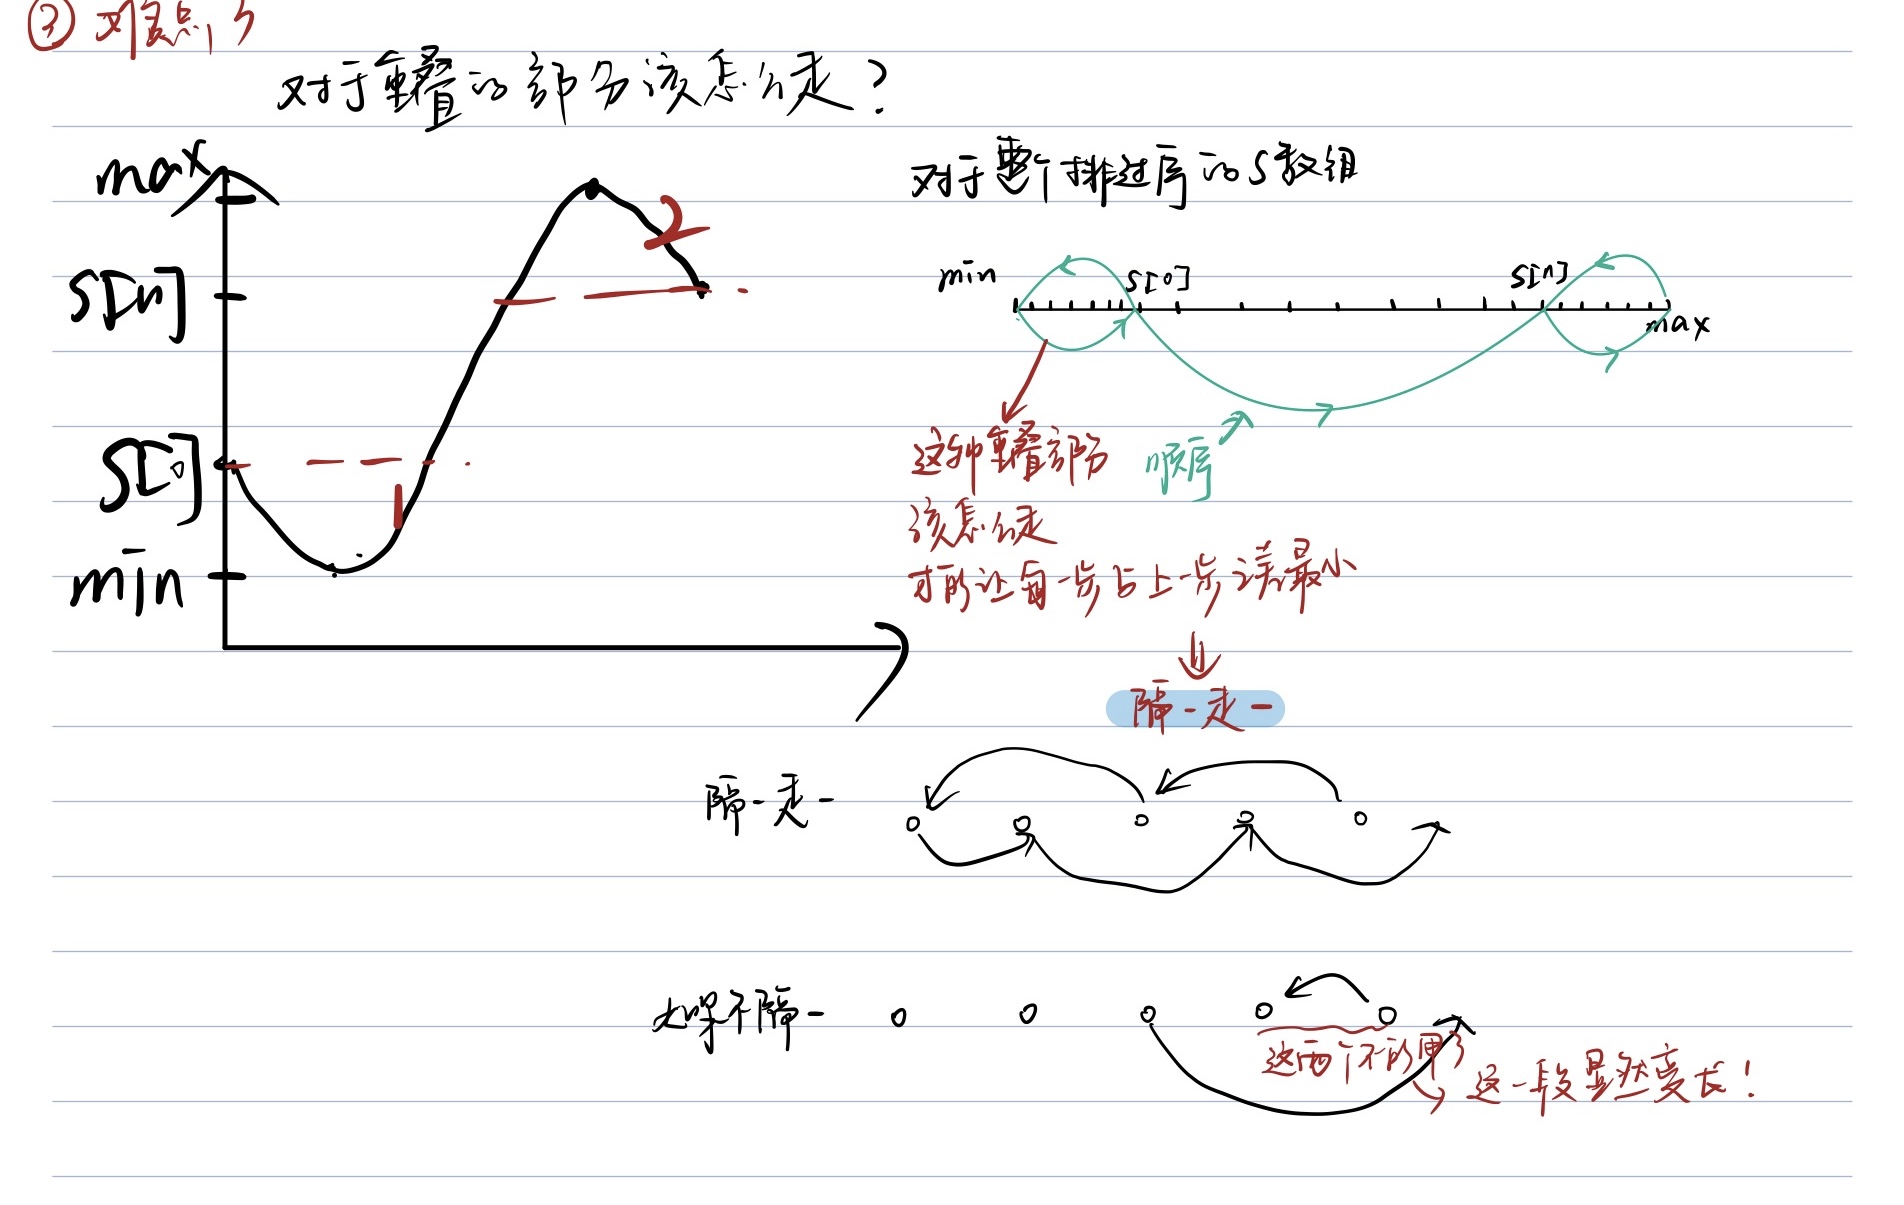 ③ 难点3
对于重叠的部分该怎么走?
max
S[n]
S[0]
min
2
1
对于整个排过序的S数组
min
S[0]
S[n]
max
这种重叠部分
该怎么走
才能让每一步与上一步误差最小
顺序
隔一走一
隔一走一
如果不隔一
这两个不能用了
这一段显然变长!